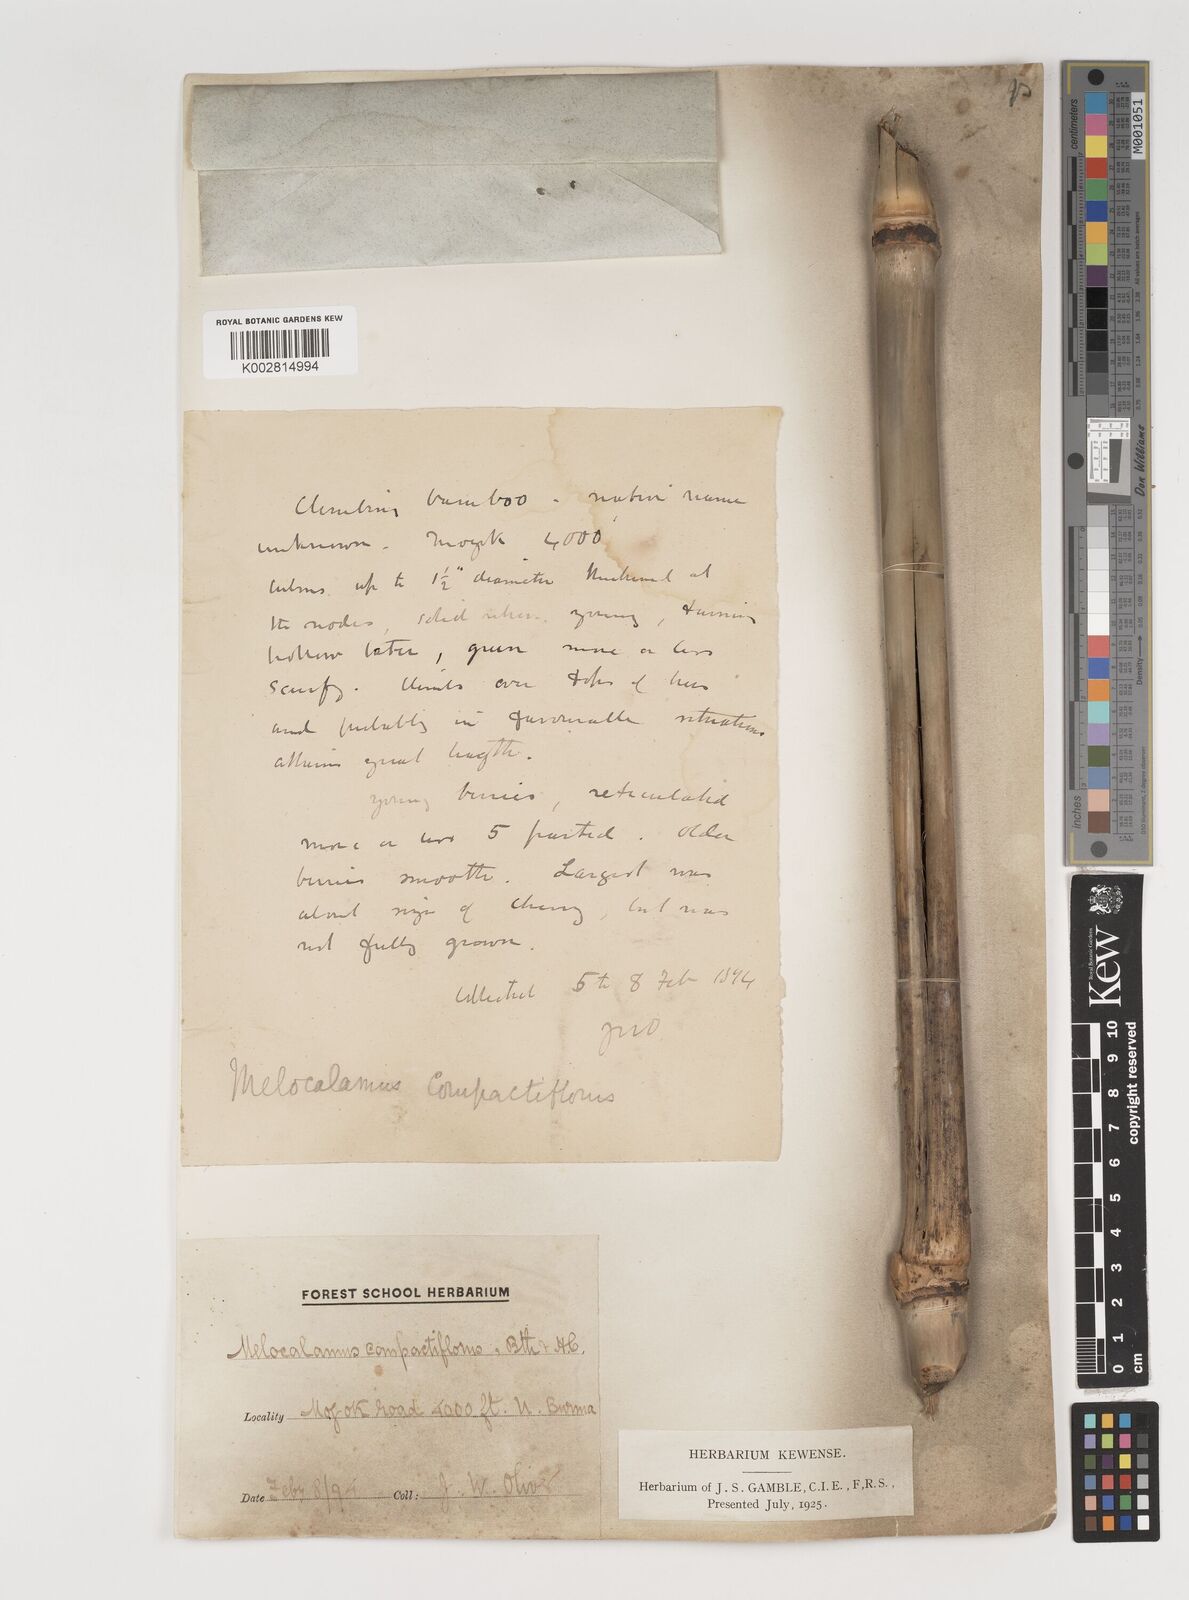 ROYAL BOTANIC GARDENS KEW
K002814994
Climbing bamboo - native name
unknown. Mogok 4000'
culms up to 1½" diameter thickened at
the nodes, solid when young, turning
hollow later, green more or less
scurfy. Climbs over tops of trees
and probably in favourable situations
attains great length.
young berries, reticulated
more or less 5 parted. Older
berries smooth. Largest was
about size of cherry, but was
not fully grown.
Collected 5th 8 Feb 1894
JWO
Melocalamus Compactiflorus
FOREST SCHOOL HERBARIUM
Melocalamus compactiflorus, Bth & H.
Locality Mogok road 4000 ft. U. Burma
Date Feby 8/94 Coll: J. W. Oliver
HERBARIUM KEWENSE.
Herbarium of J. S. GAMBLE, C.I.E., F.R.S.,
Presented July, 1925.
centimeters
inches
M001051
Don Williams
Density
Royal Botanic Gardens
Kew
0 1 2 3 4 5 6 7 8 9 10
cm
copyright reserved